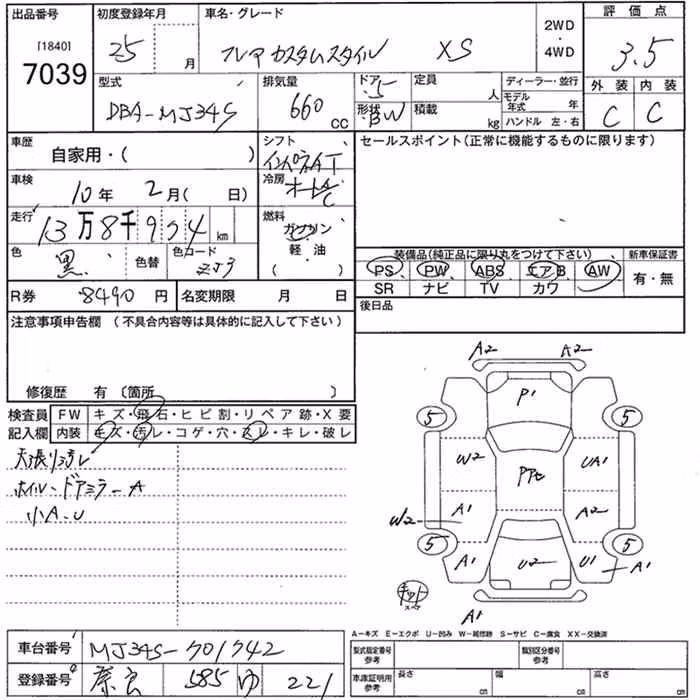 出品番号 初度登録年月 車名・グレード 2WD・4WD 評価点
[1840]
7039
25 月
フレア カスタムスタイル XS
3.5
型式 排気量 ドア 定員 人 ディーラー・並行 外装 内装
DBA-MJ34S 660 CC 5
形状 BW 積載 kg モデル年式 年 C C
ハンドル 左・右
車歴 自家用・( ) シフト セールスポイント(正常に機能するものに限ります)
インパネAT
車検 10年 2月( 日) 冷房 オートA/C
走行 13万8千954km 燃料 ガソリン・軽・油 ( )
色 黒 色替 色コード ZJ3
装備品(純正品に限り丸をつけて下さい) 新車保証書
PS PW ABS エアB AW 有・無
SR ナビ TV カワ
R券 8490円 名変期限 月 日 後日品
注意事項申告欄(不具合内容等は具体的に記入して下さい)
修復歴 有 〔箇所 〕
検査員記入欄 FW キズ・飛石・ヒビ割・リペア跡・X要
内装 キズ・汚レ・コゲ・穴・スレ・キレ・破レ
天張り汚レ
ホイル・ドアミラーA
小A・U
A2 A2
P1
5 5
W2 PPt UA1
W2 A1 A2
5 5
A1 U2 U1 A1
キット
A1
A-キズ E-エクボ U-凹み W-補修跡 S-サビ C-腐食 XX-交換済
車台番号 MJ34S-701742
登録番号 奈良 585 ゆ 221
型式指定番号 参考 類別区分番号 参考
車庫証明用 参考 長さ cm 幅 cm 高さ cm